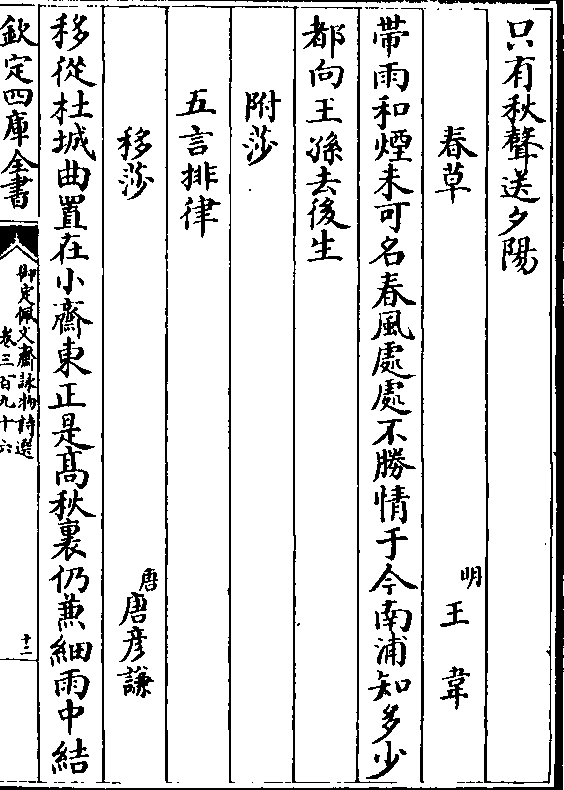 只有秋聲送夕陽
春草 明 王韋
帶雨和煙未可名春風處處不勝情于今南浦知多少
都向王孫去後生
附莎
五言排律
移莎 唐 唐彥謙
移從杜城曲置在小齋東正是高秋裏仍兼細雨中結
欽定四庫全書
御定佩文齋詠物詩選
卷三百九十六
十二